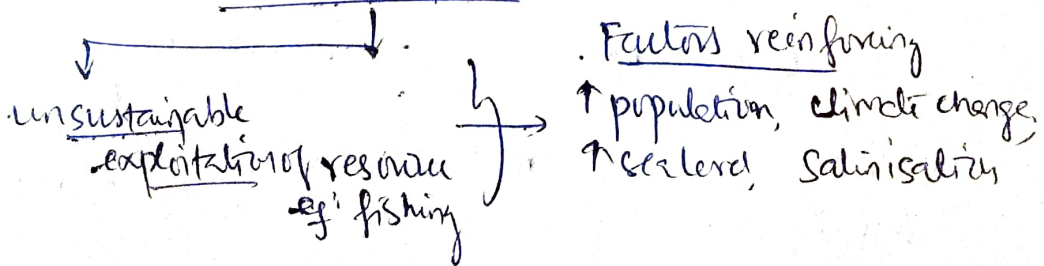 unsustainable
exploitation of resource
eg: fishing
Factors reinforcing
↑ population, climate change,
↑ sea level, salinisation